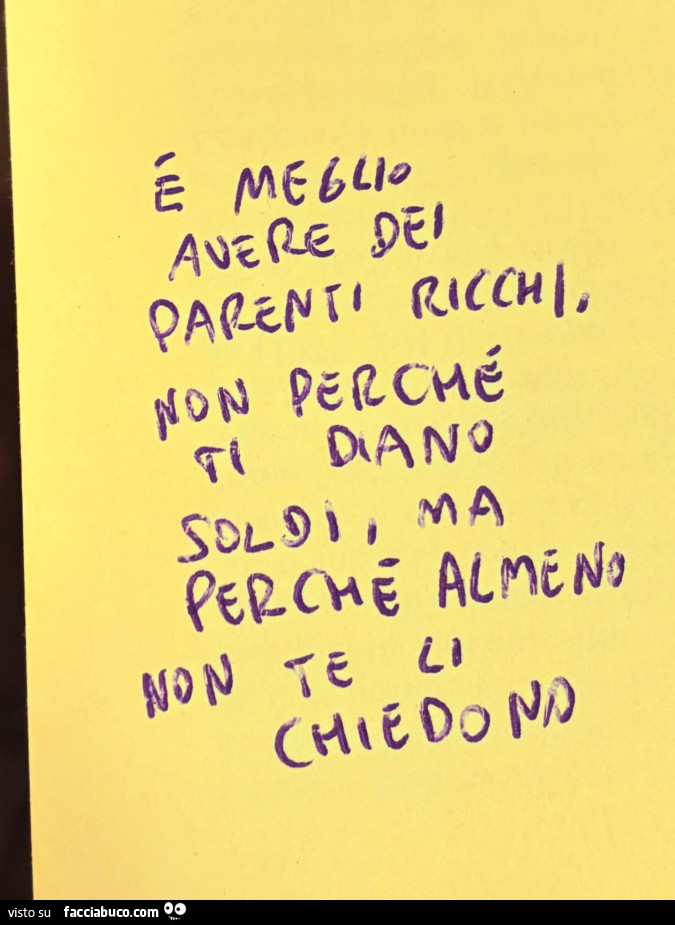 É MEGLIO
AVERE DEI
PARENTI RICCHI,
NON PERCHÉ
TI DIANO
SOLDI, MA
PERCHÉ ALMENO
NON TE LI
CHIEDONO
visto su facciabuco.com